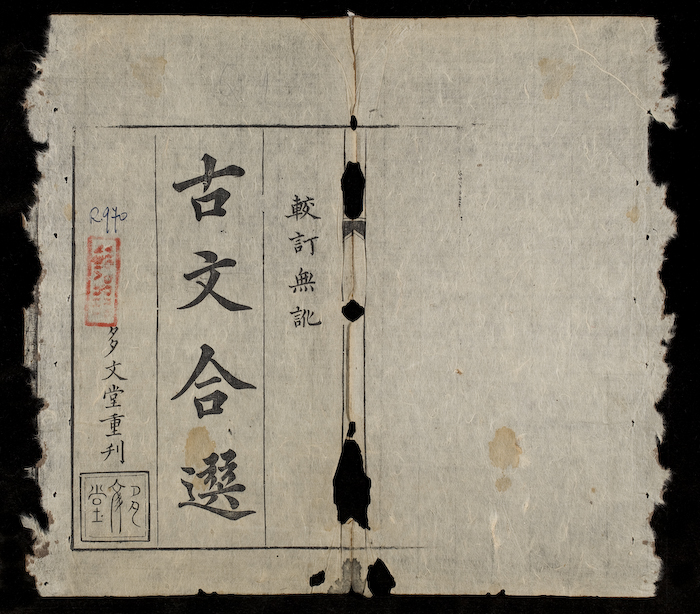 較訂無訛
古文合選
多文堂重刊
R.970